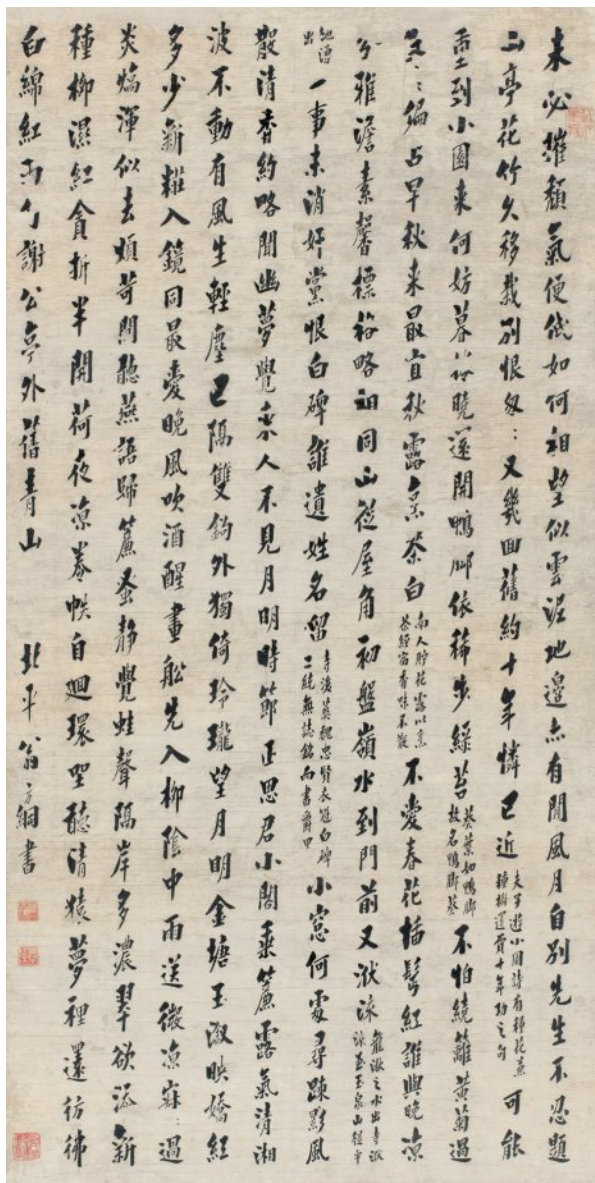 未必摧頹氣便低如何相望似雲泥地邊亦有閒風月自別先生不忍題
小亭花竹久移栽別恨匆:又幾回舊約十年憐已近夫子遊小園詩有種花兼種樹還費十年功之句可能
重到小園來何妨暮落曉還開鴨腳依稀步綠苔葵葉如鴨腳故名鴨腳葵不怕繞籬黃菊過
偏占早秋來最宜秋露烹茶白南人貯花露以烹茶經宿香味不散不愛春花插髻紅誰與晚涼
分雅澹素馨標格略相同山從屋角初盤嶺水到門前又洑流龍潭之水出寺洑流至玉泉山經平
地湧出一事未消奸黨恨白碑誰遺姓名留寺後葬魏忠賢衣冠白碑二統無誌銘而書爵甲小窗何處尋疎影風
散清香約略聞幽夢覺來人不見月明時節正思君小閣垂簾露氣清湘
波不動有風生輕塵已隔雙鉤外獨倚玲瓏望月明金塘玉漵映嬌紅
多少新糚入鏡同最愛晚風吹酒醒畫船先入柳陰中雨送微涼寐:過
炎熇渾似去煩苛閒聽燕語歸簾蚤靜覺蛙聲隔岸多濃翠欲添新
種柳濕紅貪折半開荷夜涼卷帙自迴環坐聽清猿夢裡還彷彿
白綿紅雨勺謝公亭外舊青山 北平翁方綱書